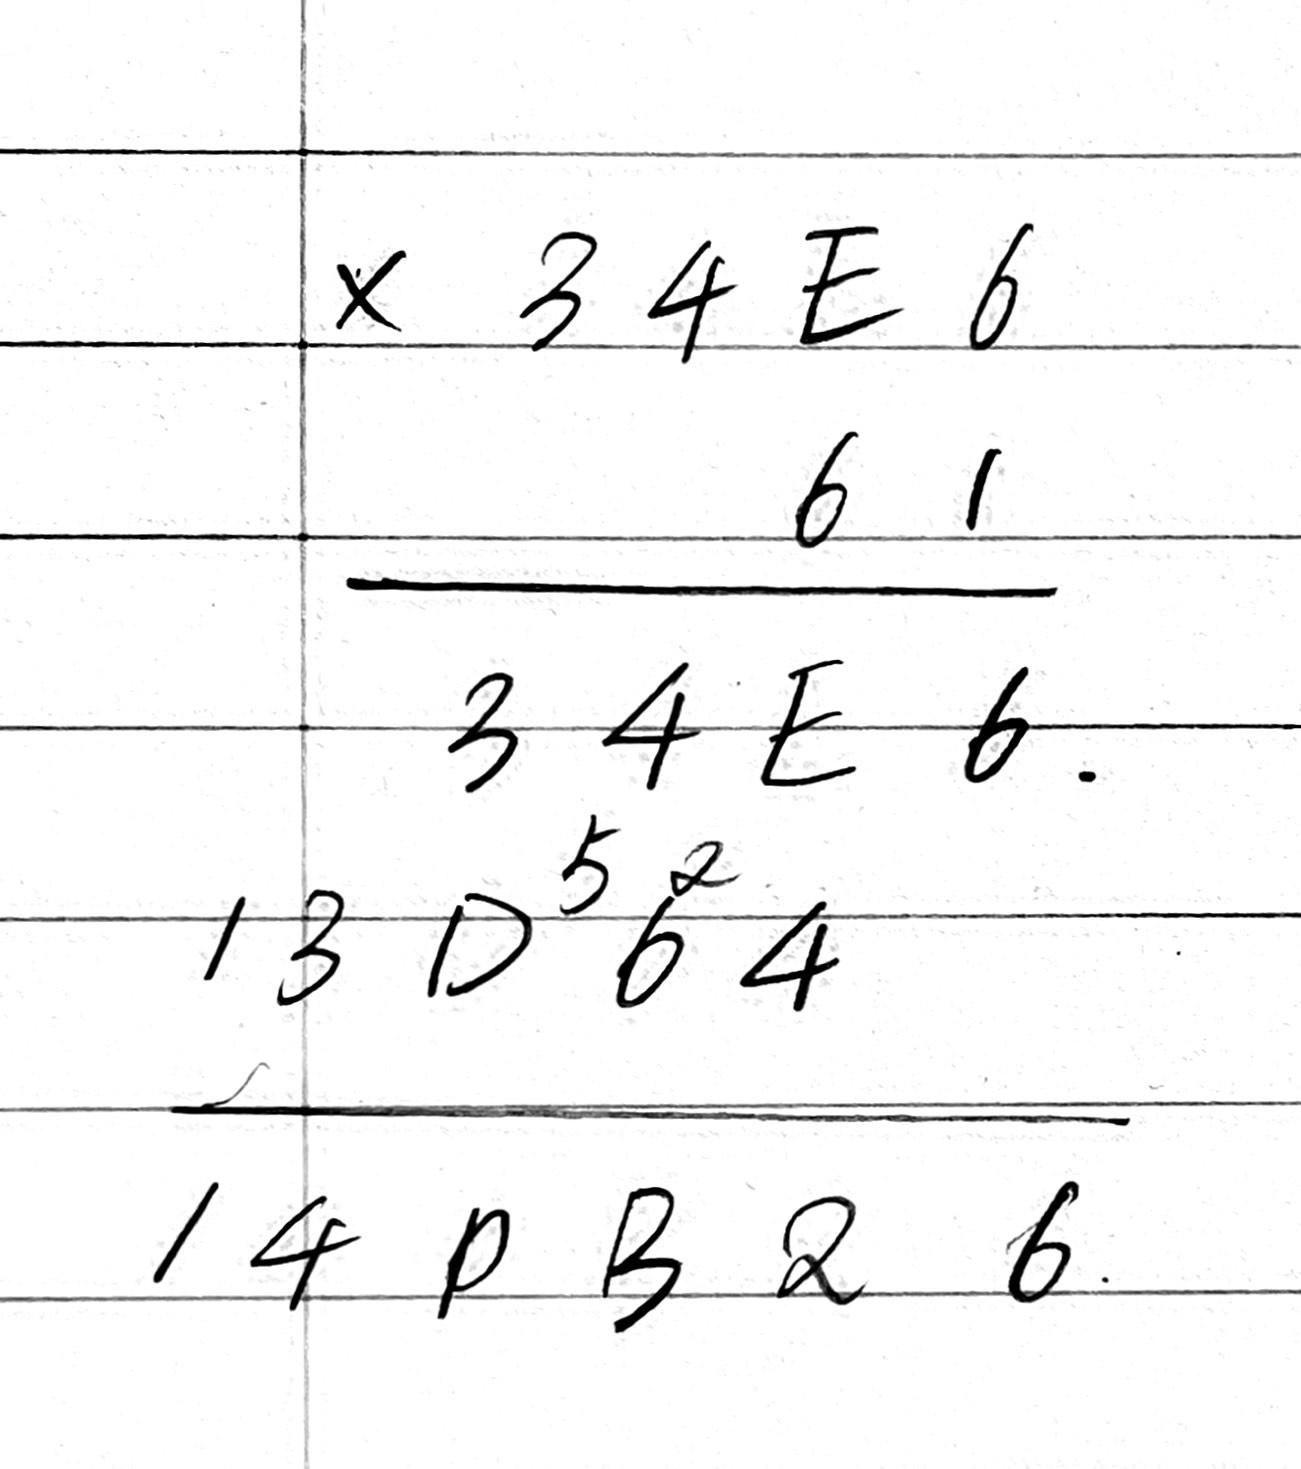 × 3 4 E 6
6 1
3 4 E 6.
5 2
1 3 D 6 4
1 4 D B 2 6.